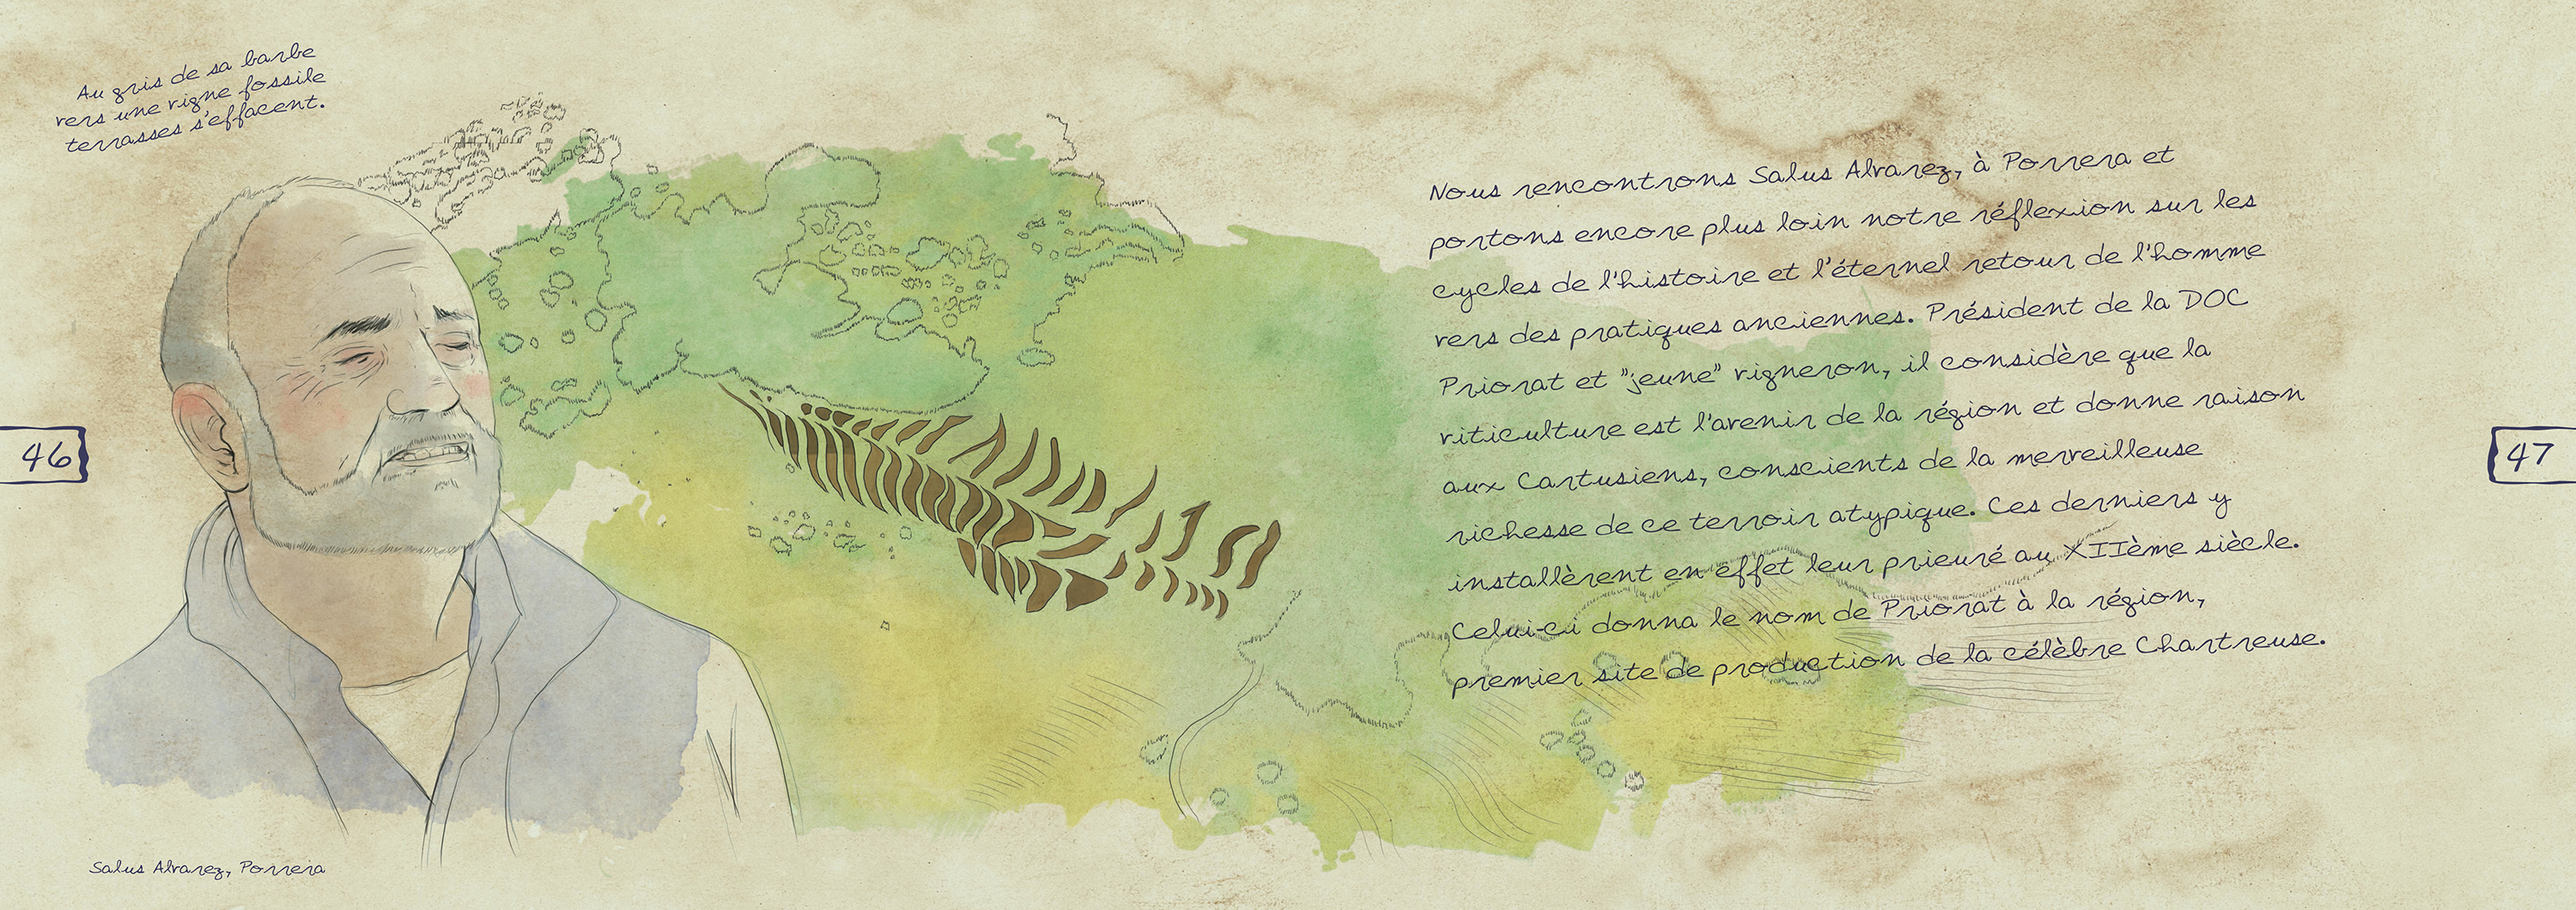 Au gris de sa barbe
vers une vigne fossile
terrasses s'effacent.
46
Salus Alvarez, Porrera
Nous rencontrons Salus Alvarez, à Porrera et
portons encore plus loin notre réflexion sur les
cycles de l'histoire et l'éternel retour de l'homme
vers des pratiques anciennes. Président de la DOC
Priorat et "jeune" vigneron, il considère que la
viticulture est l'avenir de la région et donne raison
aux Cartusiens, conscients de la merveilleuse
richesse de ce terroir atypique. Ces derniers y
installèrent en effet leur prieuré au XIIème siècle.
Celui-ci donna le nom de Priorat à la région,
premier site de production de la célèbre Chartreuse.
47